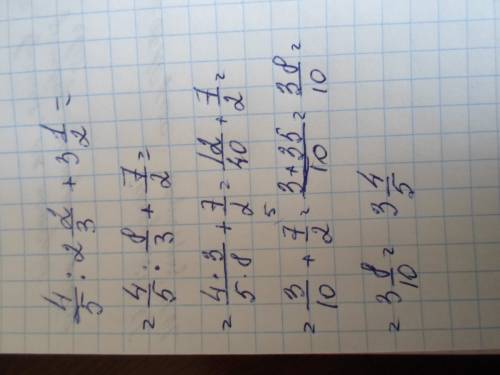 4/5 : 2 2/3 + 3 1/2 =
= 4/5 : 8/3 + 7/2 =
= 4·3/5·8 + 7/2 = 12/40 + 7/2 =
= 3/10 + 7/2 ⁵ = 3+35/10 = 38/10 =
= 3 8/10 = 3 4/5